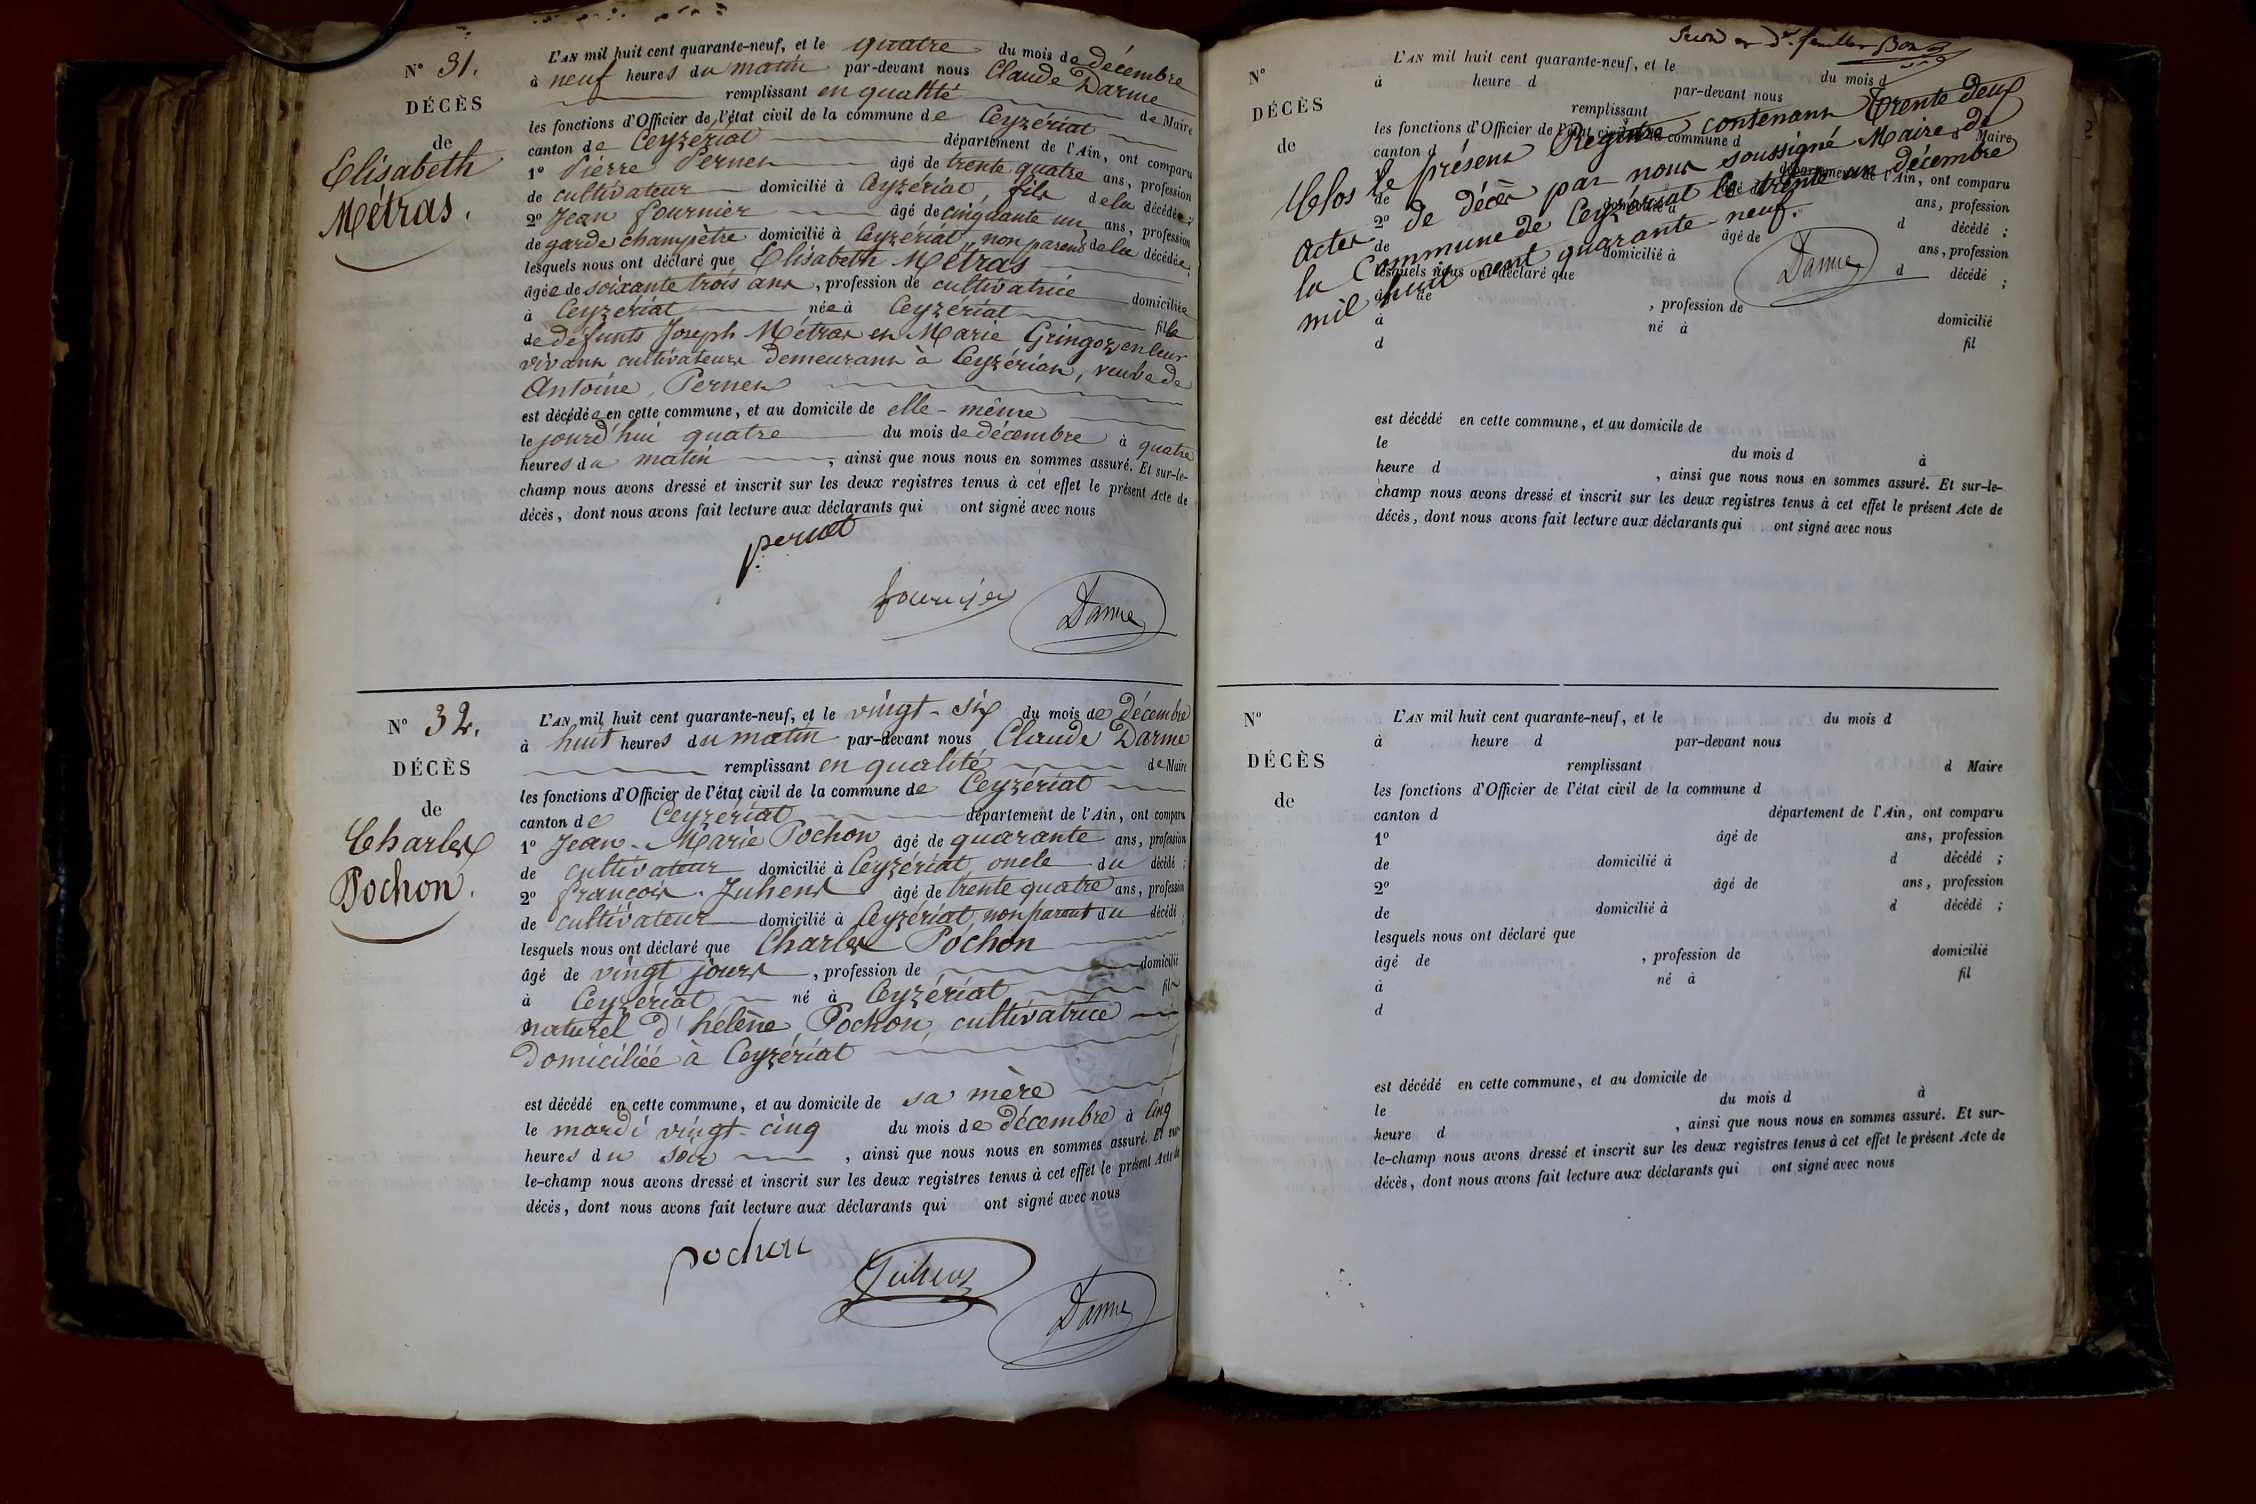 N° 31.
DÉCÈS
de
Elisabeth
Métras.
L'AN mil huit cent quarante-neuf, et le quatre du mois de décembre
à neuf heures du matin par-devant nous Claude Darme
remplissant en qualité de Maire
les fonctions d'Officier de l'état civil de la commune de Ceyzériat
canton de Ceyzériat département de l'Ain, ont comparu
1° Pierre Pernet âgé de trente quatre ans, profession
de cultivateur domicilié à Ceyzériat, fils de la décédée ;
2° Jean fournier âgé de cinquante un ans, profession
de garde champêtre domicilié à Ceyzériat, non parent de la décédée ;
lesquels nous ont déclaré que Elisabeth Métras
âgée de soixante trois ans, profession de cultivatrice domiciliée
à Ceyzériat née à Ceyzériat fille
de défunts Joseph Métras et Marie Gringoz en leur
vivant cultivateurs demeurant à Ceyzériat, veuve de
Antoine Pernet
est décédée en cette commune, et au domicile de elle-même
le jourd'hui quatre du mois de décembre à quatre
heures du matin, ainsi que nous nous en sommes assuré. Et sur-le-
champ nous avons dressé et inscrit sur les deux registres tenus à cet effet le présent Acte de
décès, dont nous avons fait lecture aux déclarants qui ont signé avec nous
pernet
fournier
Darme
N° 32.
DÉCÈS
de
Charles
Pochon.
L'AN mil huit cent quarante-neuf, et le vingt-six du mois de décembre
à huit heures du matin par-devant nous Claude Darme
remplissant en qualité de Maire
les fonctions d'Officier de l'état civil de la commune de Ceyzériat
canton de Ceyzériat département de l'Ain, ont comparu
1° Jean-Marie Pochon âgé de quarante ans, profession
de cultivateur domicilié à Ceyzériat, oncle du décédé ;
2° françois Juhens âgé de trente quatre ans, profession
de cultivateur domicilié à Ceyzériat, non parent du décédé ;
lesquels nous ont déclaré que Charles Pochon
âgé de vingt jours, profession de domicilié
à Ceyzériat né à Ceyzériat fils
naturel d'hélène Pochon, cultivatrice
domiciliée à Ceyzériat
est décédé en cette commune, et au domicile de sa mère
le mardi vingt-cinq du mois de décembre à cinq
heures du soir, ainsi que nous nous en sommes assuré. Et sur-
le-champ nous avons dressé et inscrit sur les deux registres tenus à cet effet le présent Acte de
décès, dont nous avons fait lecture aux déclarants qui ont signé avec nous
pochon
Juhens
Darme
Second et dr. feuillet Bon
N°
DÉCÈS
de
L'AN mil huit cent quarante-neuf, et le du mois d
à heure d par-devant nous
remplissant d Maire
les fonctions d'Officier de l'état civil de la commune d
canton d département de l'Ain, ont comparu
1° âgé de ans, profession
de domicilié à d décédé ;
2° âgé de ans, profession
de domicilié à d décédé ;
lesquels nous ont déclaré que
âgé de , profession de domicilié
à né à fil
d
Clos le présent Registre contenant trente deux
actes de décès par nous soussigné Maire de
la Commune de Ceyzériat le trente un décembre
mil huit cent quarante-neuf.
Darme
est décédé en cette commune, et au domicile de
le du mois d à
heure d , ainsi que nous nous en sommes assuré. Et sur-le-
champ nous avons dressé et inscrit sur les deux registres tenus à cet effet le présent Acte de
décès, dont nous avons fait lecture aux déclarants qui ont signé avec nous
N°
DÉCÈS
de
L'AN mil huit cent quarante-neuf, et le du mois d
à heure d par-devant nous
remplissant d Maire
les fonctions d'Officier de l'état civil de la commune d
canton d département de l'Ain, ont comparu
1° âgé de ans, profession
de domicilié à d décédé ;
2° âgé de ans, profession
de domicilié à d décédé ;
lesquels nous ont déclaré que
âgé de , profession de domicilié
à né à fil
d
est décédé en cette commune, et au domicile de
le du mois d à
heure d , ainsi que nous nous en sommes assuré. Et sur-
le-champ nous avons dressé et inscrit sur les deux registres tenus à cet effet le présent Acte de
décès, dont nous avons fait lecture aux déclarants qui ont signé avec nous